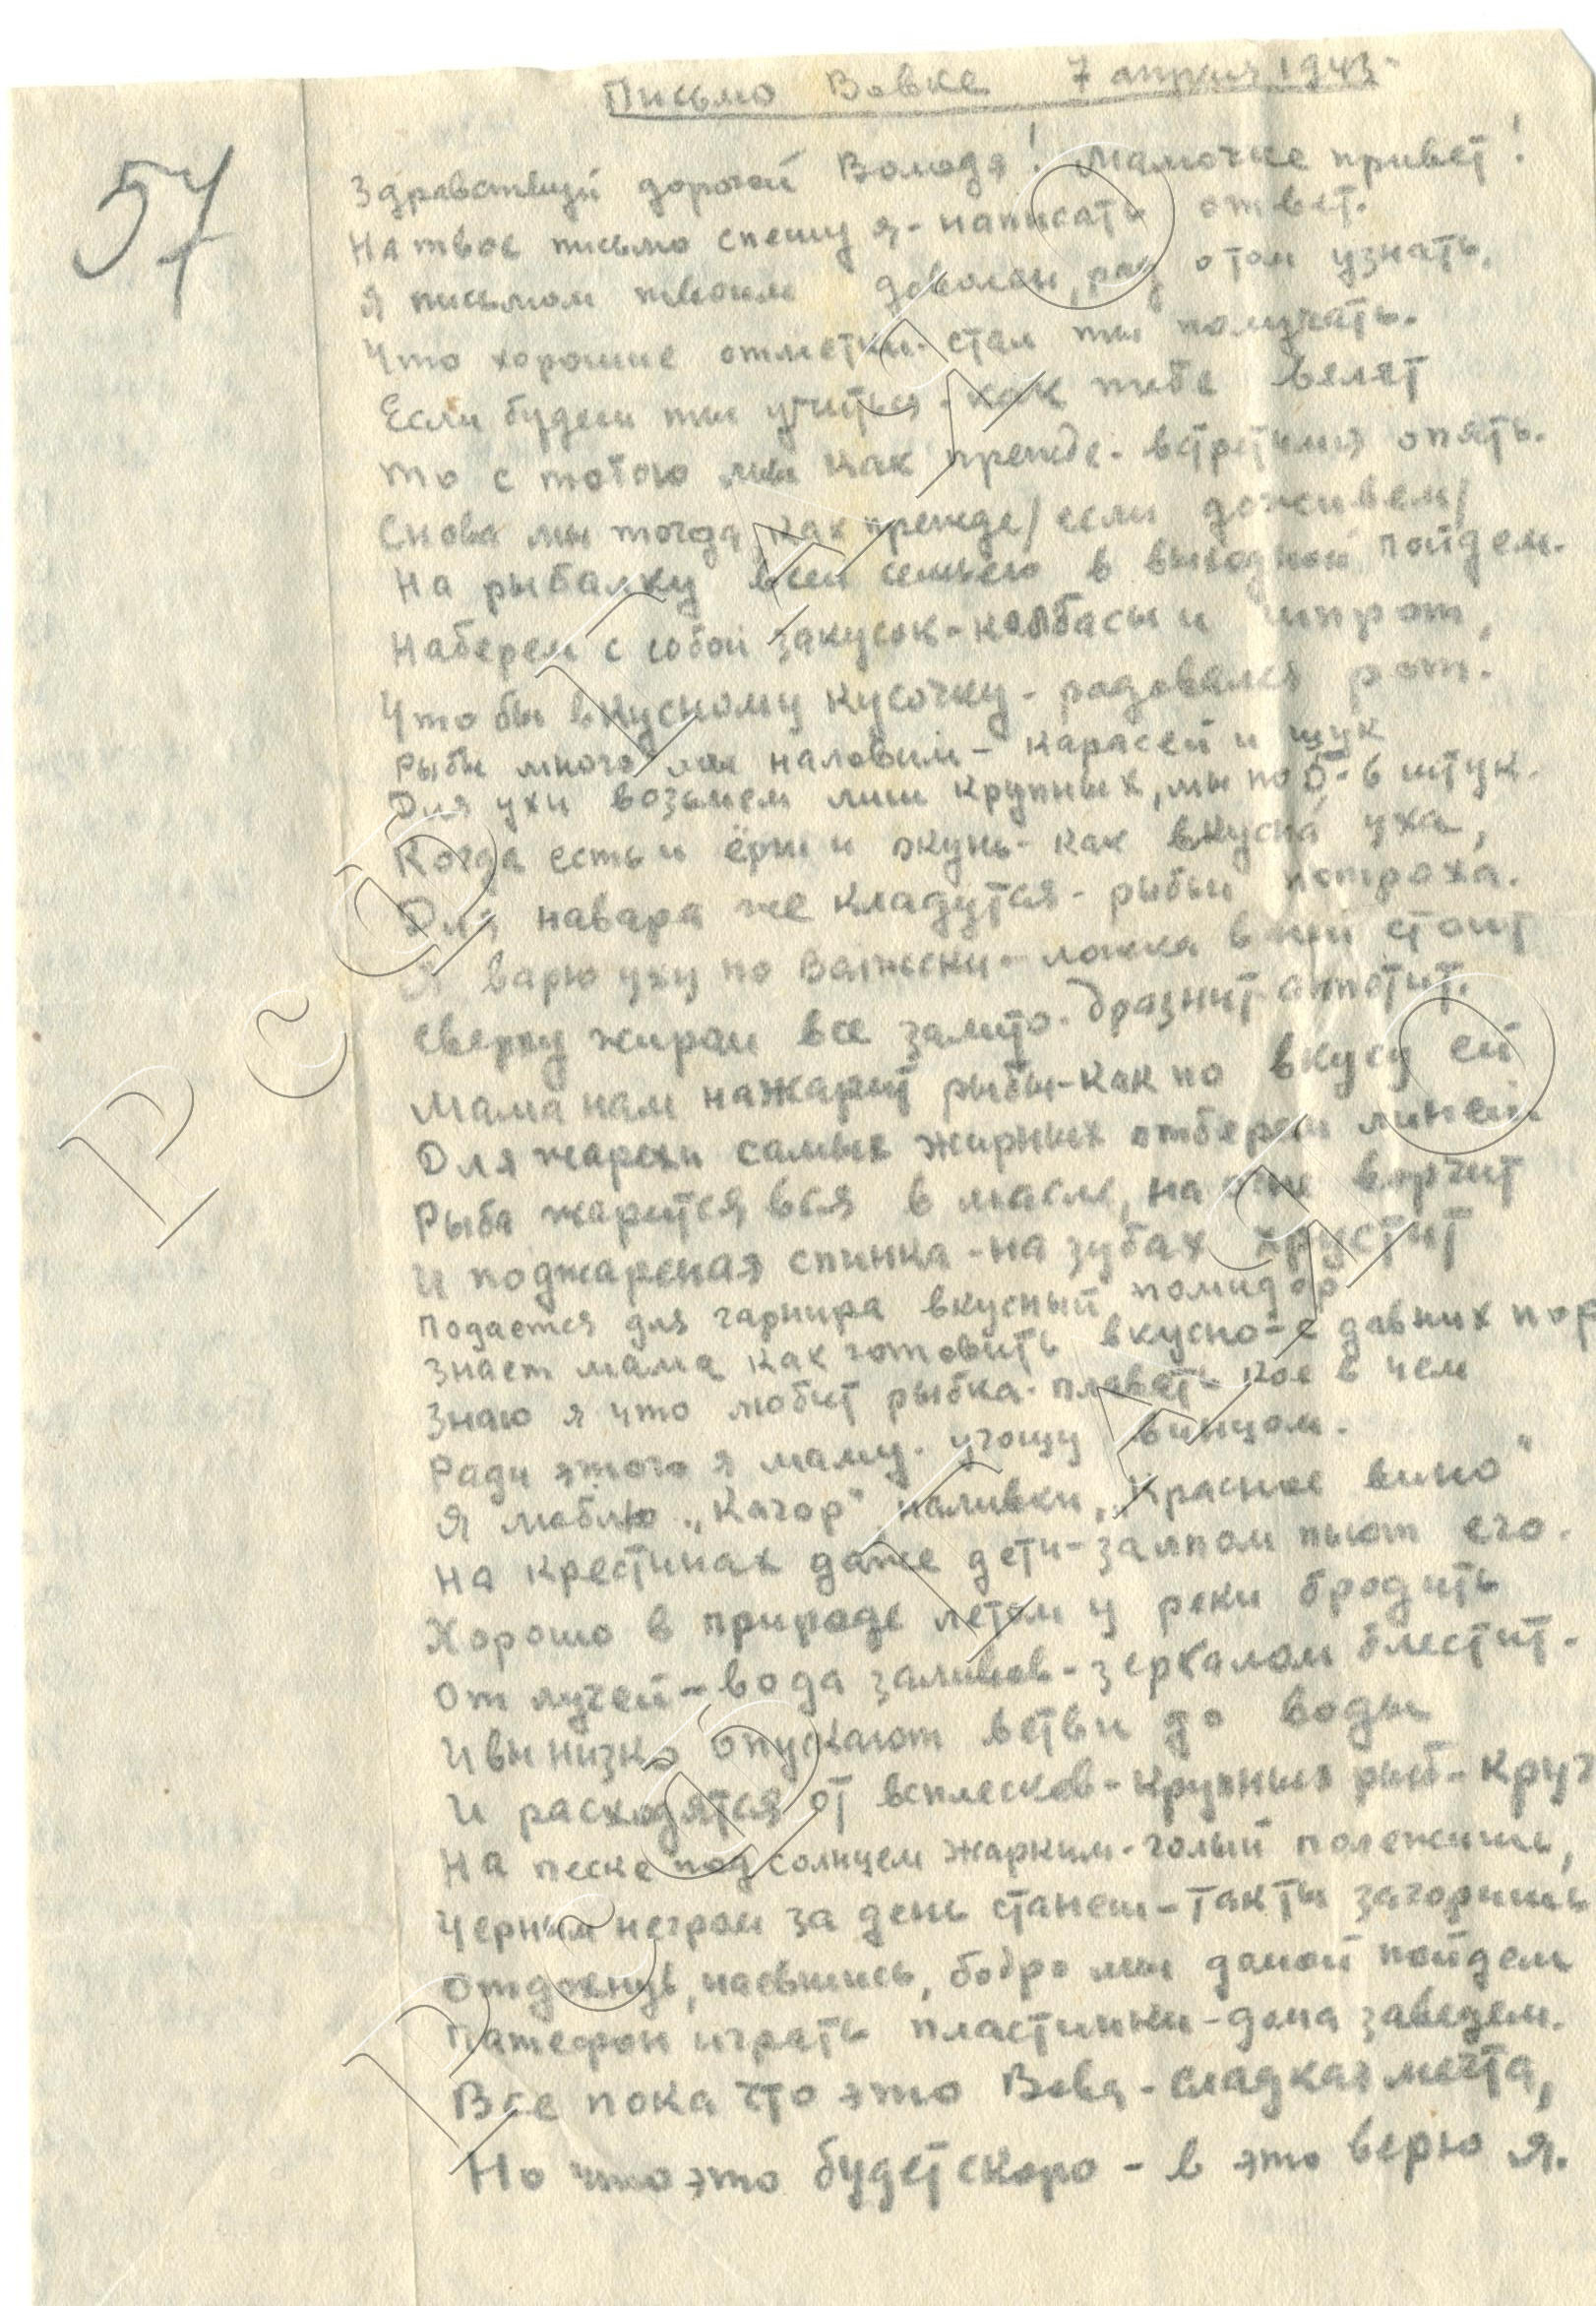 Письмо Вовке 7 апреля 1943.
57
Здравствуй дорогой Володя! Мамочке привет!
На твое письмо спешу я - написать ответ.
Я письмом твоим доволен, рад о том узнать,
Что хорошие отметки - стал ты получать.
Если будешь ты учиться - как тебе велят
То с тобою мы как прежде - встретимся опять.
Снова мы тогда, как прежде /если доживем/
На рыбалку всей семьею в выходной пойдем.
Наберем с собой закусок - колбасы и шпрот,
Чтобы вкусному кусочку - радовался рот.
Рыбы много мы наловим - карасей и щук
Для ухи возьмем лиш крупных, мы по 5-6 штук.
Когда есть и ёрш и окунь - как вкусна уха,
Для навара же кладутся - рыбьи потроха.
Я варю уху по Вятски - ложка в ней стоит
Сверху жиром все залито - дразнит аппетит.
Мама нам нажарит рыбы - как по вкусу ей
Для жарехи самых жирных отберем линей
Рыба жарится вся в масле, на огне ворчит
И поджареная спинка - на зубах хрустит
Подается для гарнира вкусный помидор
Знает мама как готовить вкусно - с давних пор
Знаю я что любит рыбка - плавать - кое в чем
Ради этого я маму - угощу винцом.
Я люблю „Кагор" наливки, „Красное вино"
На крестинах даже дети - залпом пьют его.
Хорошо в природе летом у реки бродить
От лучей - вода заливов - зеркалом блестит.
Ивы низко опускают ветви до воды
И расходятся от всплесков - крупных рыб - круг
На песке под солнцем жарким - голый полежишь,
Черным негром за день станеш - так ты загоришь
Отдохнув, наевшись, бодро мы домой пойдем
Патефон играть пластинки - дома заведем.
Все пока что это Вова - сладкая мечта,
Но что это будет скоро - в это верю я.
РСФ ГАНО
РСФ ГАНО